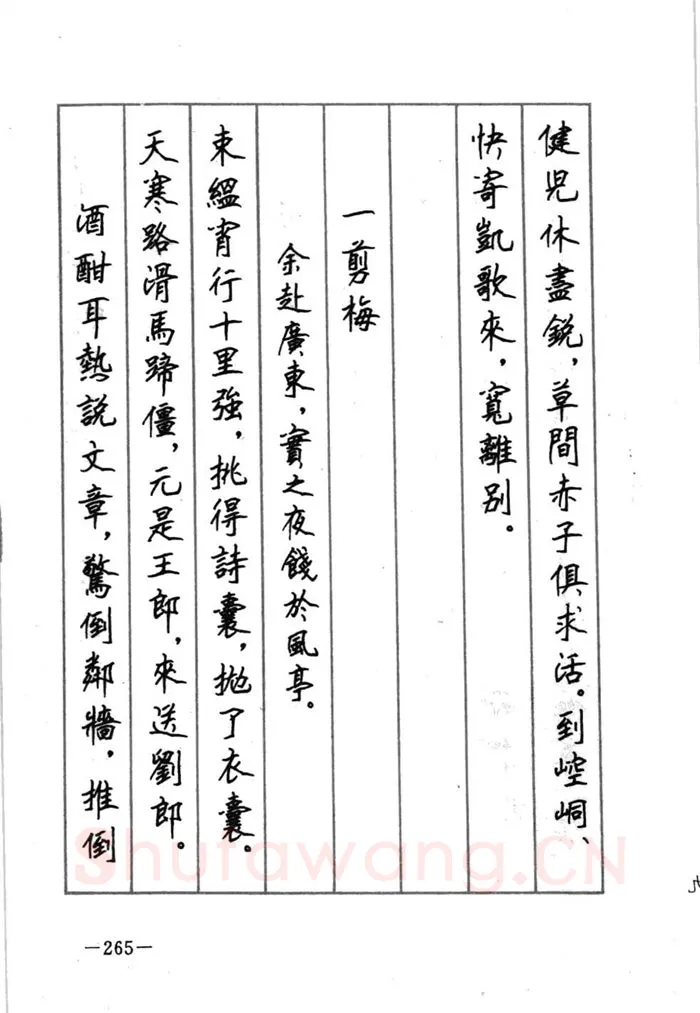 健児休盡銳，草間赤子俱求活。到崆峒、
快寄凱歌來，寬離别。
一剪梅
余赴廣東，實之夜餞於風亭。
束緼宵行十里強，挑得詩囊，拋了衣囊。
天寒路滑馬蹄僵，元是王郎，來送劉郎。
酒酣耳熱説文章，驚倒鄰牆，推倒
—265—
Shufawang.CN